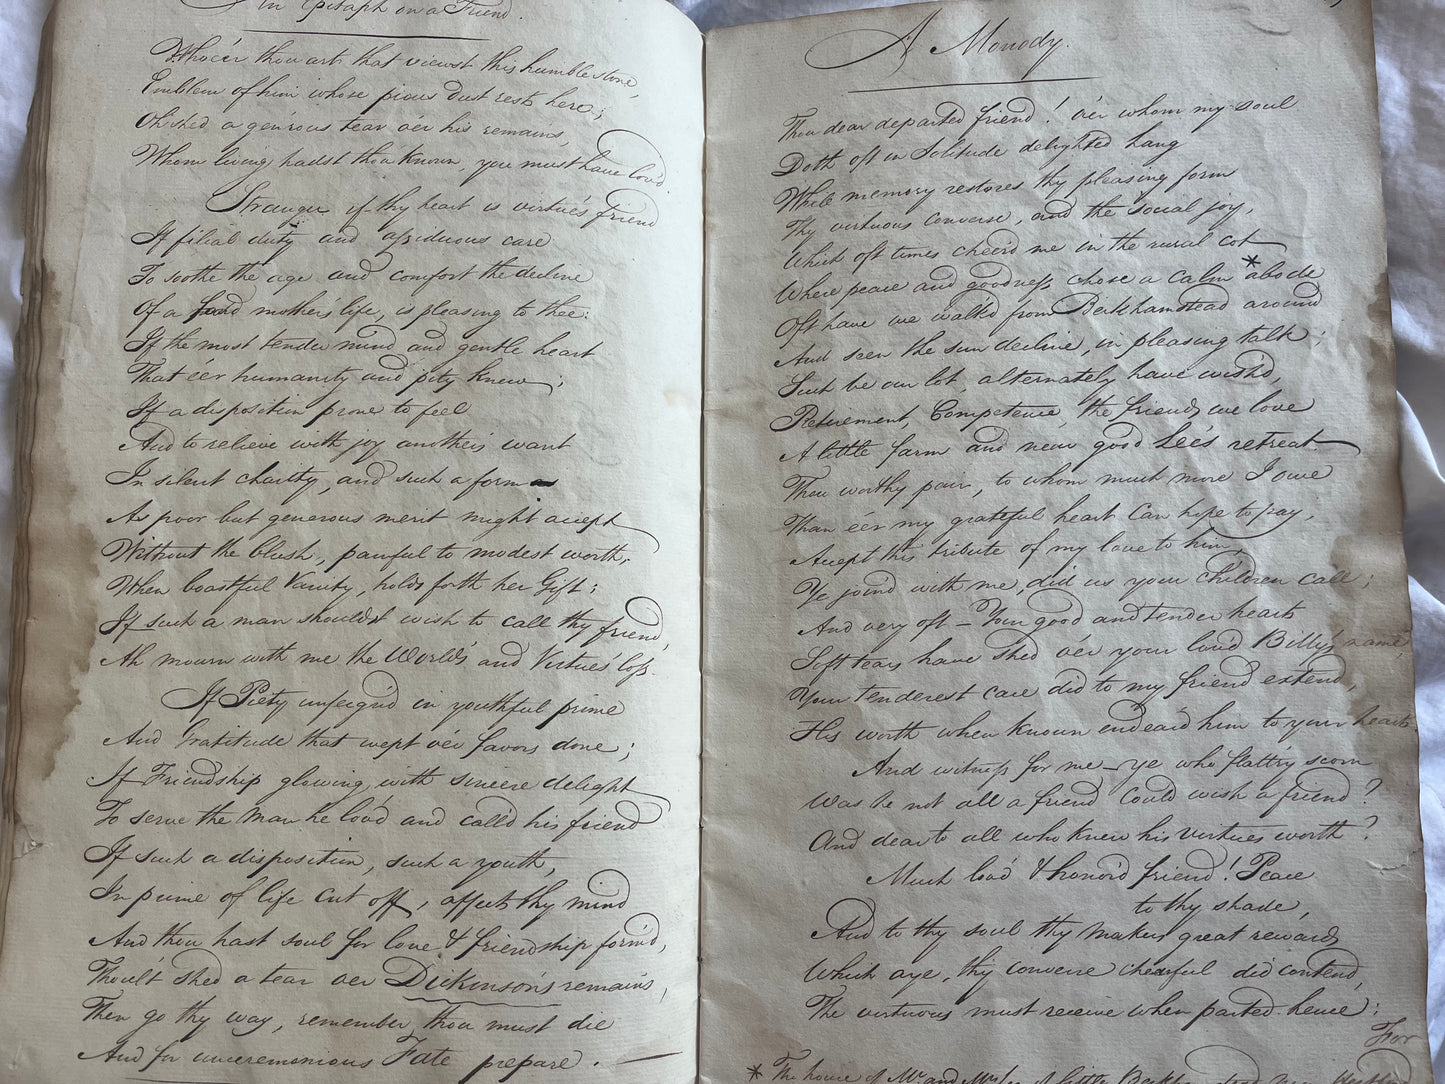 An Epitaph on a Friend.
Whoe'er thou art that viewst this humble stone,
Emblem of him whose pious dust rests here;
Oh shed a gen'rous tear o'er his remains,
Whom living hadst thou known, you must have lov'd
Stranger if thy heart is virtue's friend
If filial duty and assiduous care
To soothe the age and comfort the decline
Of a fond mother's life, is pleasing to thee:
If the most tender mind and gentle heart
That e'er humanity and pity knew;
If a disposition prone to feel
And to relieve with joy another's want
In silent charity, and such a form
As poor but generous merit might accept
Without the blush, painful to modest worth,
When boastful Vanity, holds forth her Gift;
If such a man shouldst wish to call thy friend,
Ah mourn with me the World's and Virtue's loss.
If Piety unfeign'd in youthful prime
And Gratitude that wept o'er favors done;
If Friendship glowing with sincere delight
To serve the Man he lov'd and call'd his friend
If such a disposition, such a youth,
In prime of life cut off, affects thy mind
And thou hast soul for love & friendship form'd,
Thou'lt shed a tear o'er Dickinson's remains,
Then go thy way, remember thou must die
And for unceremonious Fate prepare.
A Monody.
Thou dear departed friend! o'er whom my soul
Doth oft in Solitude delighted hang
While memory restores thy pleasing form
Thy virtuous converse, and the social joy,
Which oft times cheer'd me in the rural cot
Where peace and goodness chose a calm *abode
Oft have we walk'd from Berkhamstead around
And seen the sun decline, in pleasing talk;
Such be our lot, alternately have wish'd,
Retirement, Competence, the friends we love
A little farm and near good Lee's retreat
Thou worthy pair, to whom much more I owe
Than e'er my grateful heart can hope to pay,
Accept this tribute of my love to him,
Ye join'd with me, did us your children call;
And very oft – Your good and tender hearts
Soft tears have shed o'er your lov'd Billy's name,
Your tenderest care did to my friend extend,
His worth when known endear'd him to your hearts.
And witness for me – ye who flatt'ry scorn
Was he not all a friend could wish a friend?
And dear to all who knew his virtues worth?
Much lov'd & honor'd friend! Peace
to thy shade,
And to thy soul thy Makers great reward
Which aye, thy converse chearful did contend,
The virtuous must receive when parted hence;
For
* The house of Mr. and Mrs. Lee of little